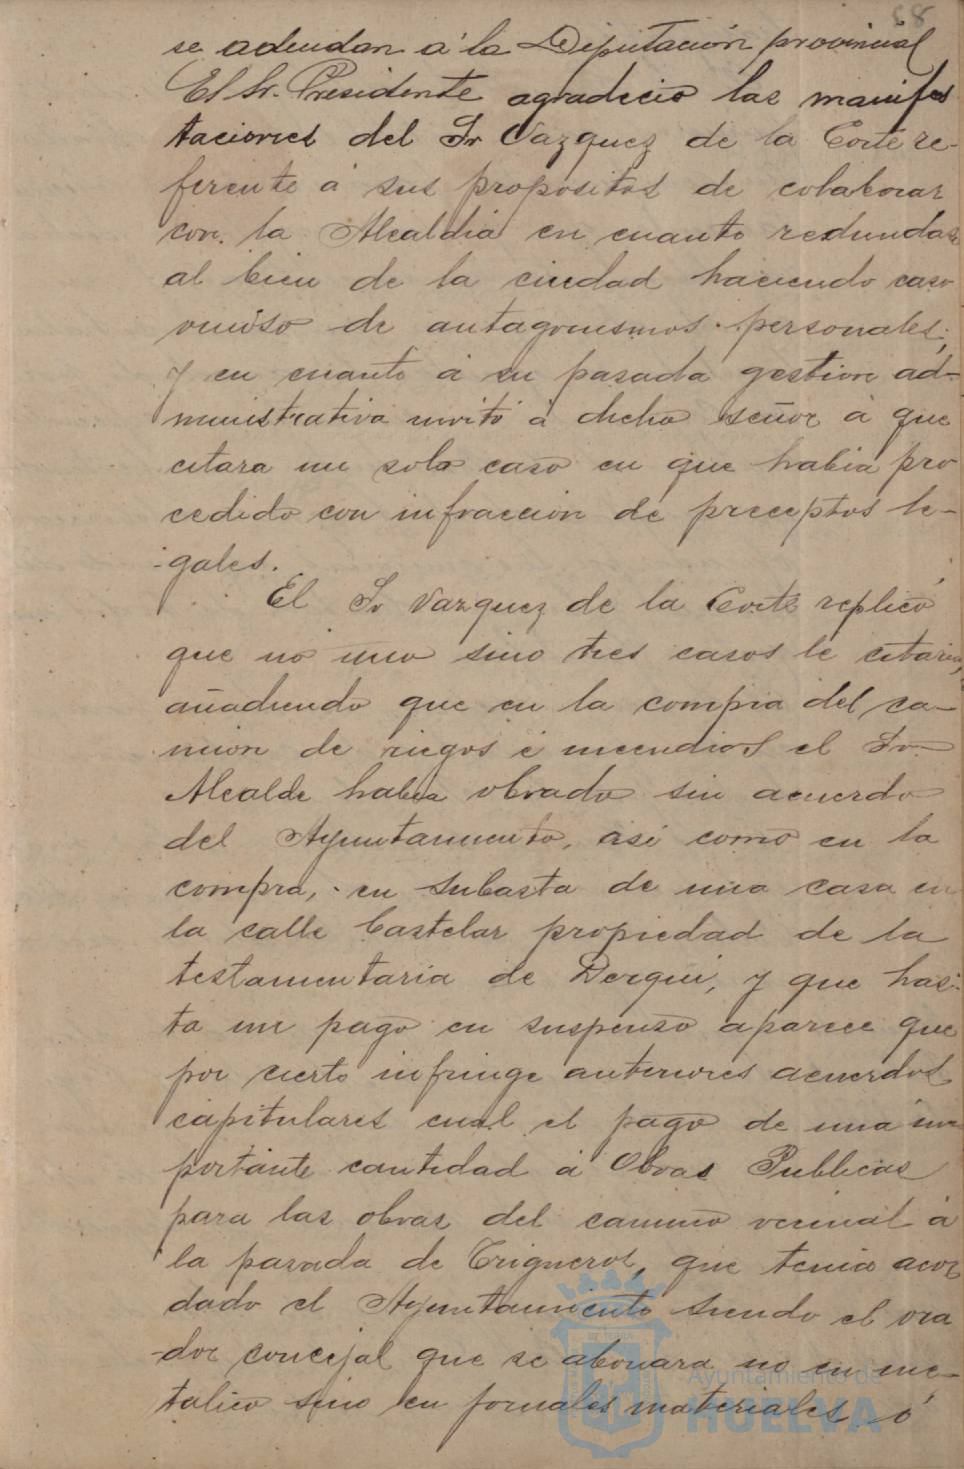 68
se adeudan á la Diputación provincial
El Sr. Presidente agradeció las manifes
taciones del Sr Vazquez de la Corte re-
ferente á sus propositos de colaborar
con la Alcaldia en cuanto redundase
al bien de la ciudad haciendo caso
omiso de antagonismos personales;
y en cuanto á su pasada gestion ad-
ministrativa invitó á dicho señor á que
citara un solo caso en que habia pro
cedido con infraccion de preceptos le-
gales.
El Sr Vazquez de la Corte replicó
que no uno sino tres casos le citaria,
añadiendo que en la compra del ca-
mion de riegos é incendios el Sr.
Alcalde habia obrado sin acuerdo
del Ayuntamiento, asi como en la
compra, en subasta de una casa en
la calle Castelar propiedad de la
testamentaria de Derqui, y que has-
ta un pago en suspenso aparece que
por cierto infringe anteriores acuerdos
capitulares cual el pago de una im
portante cantidad á Obras Publicas
para las obras del camino vecinal á
la parada de Trigueros, que tenia acor
dado el Ayuntamiento siendo el ora
dor concejal que se abonara no en me-
talico sino en jornales materiales ó
Ayuntamiento de
HUELVA